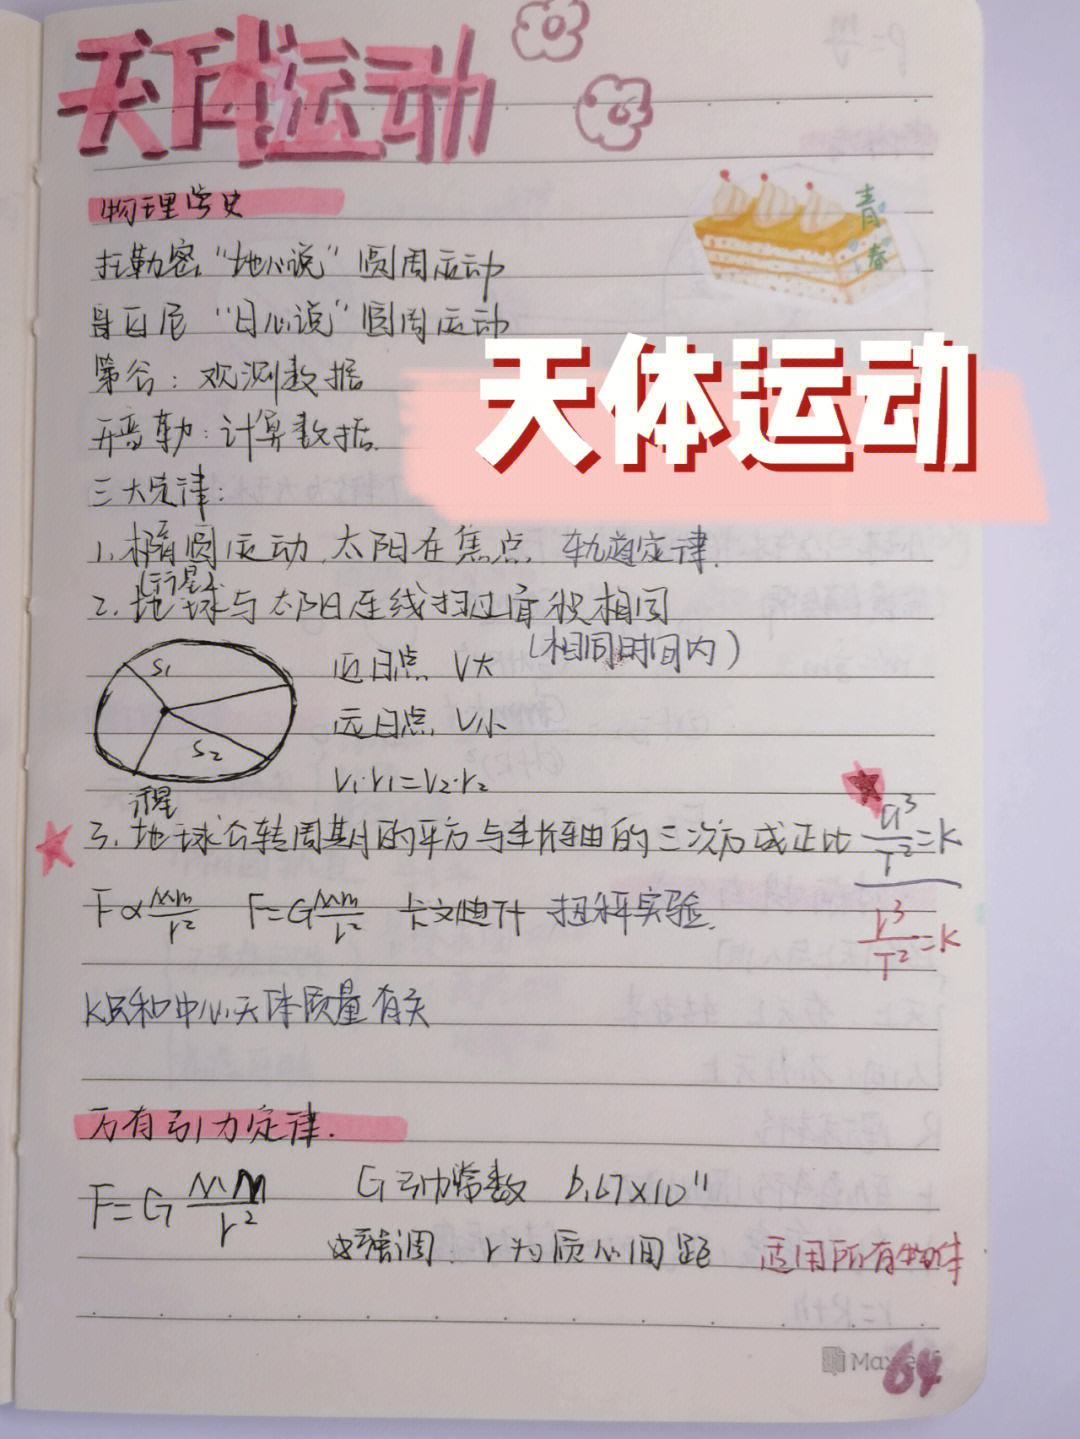 天体运动
青春
物理学史
托勒密"地心说"圆周运动
哥白尼"日心说"圆周运动
天体运动
第谷：观测数据
开普勒：计算数据.
三大定律：
1. 椭圆运动. 太阳在焦点. 轨道定律.
(行星)
2. 地球与太阳连线扫过面积相同
(相同时间内)
S₁
S₂
近日点 V大
远日点 V小
V₁·r₁=V₂·r₂
行星
3. 地球公转周期的平方与半长轴的三次方成正比 a³/T²=K
F∝Mm/r² F=GMm/r² 卡文迪许 扭秤实验.
r³/T²=K
K只和中心天体质量有关
万有引力定律.
F=G Mm/r² G引力常数 6.67×10⁻¹¹
强调. r为质心间距 适用所有物体
64